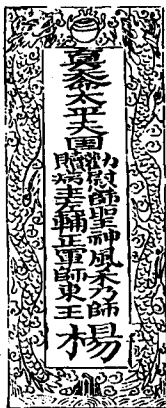 眞天命太平天囯
勸慰師聖神風禾乃師
贖病主左輔正軍師東王
楊